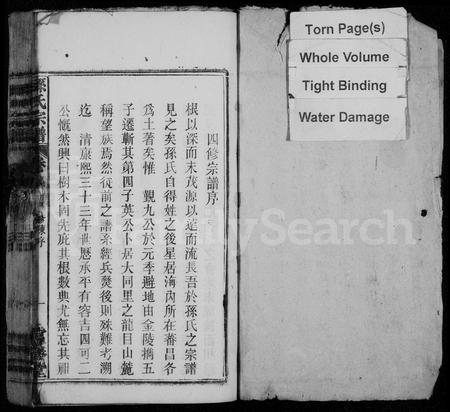 四修宗譜序
根以深而末茂源以遠而流長吾於孫氏之宗譜
見之矣孫氏自得姓之後星居海內所在蕃昌各
爲土著矣惟 覲九公於元季避地由金陵擕五
子遷蘄其第四子英公卜居大同里之龍目山麓
稱望族焉然從前之譜系經兵燹後則殊難考溯
迄 清康熙三十三年世歷承平有容吉四可二
公慨然興曰樹木固先庇其根數典尤無忘其祖
孫氏宗譜
一
Torn Page(s)
Whole Volume
Tight Binding
Water Damage
FamilySearch